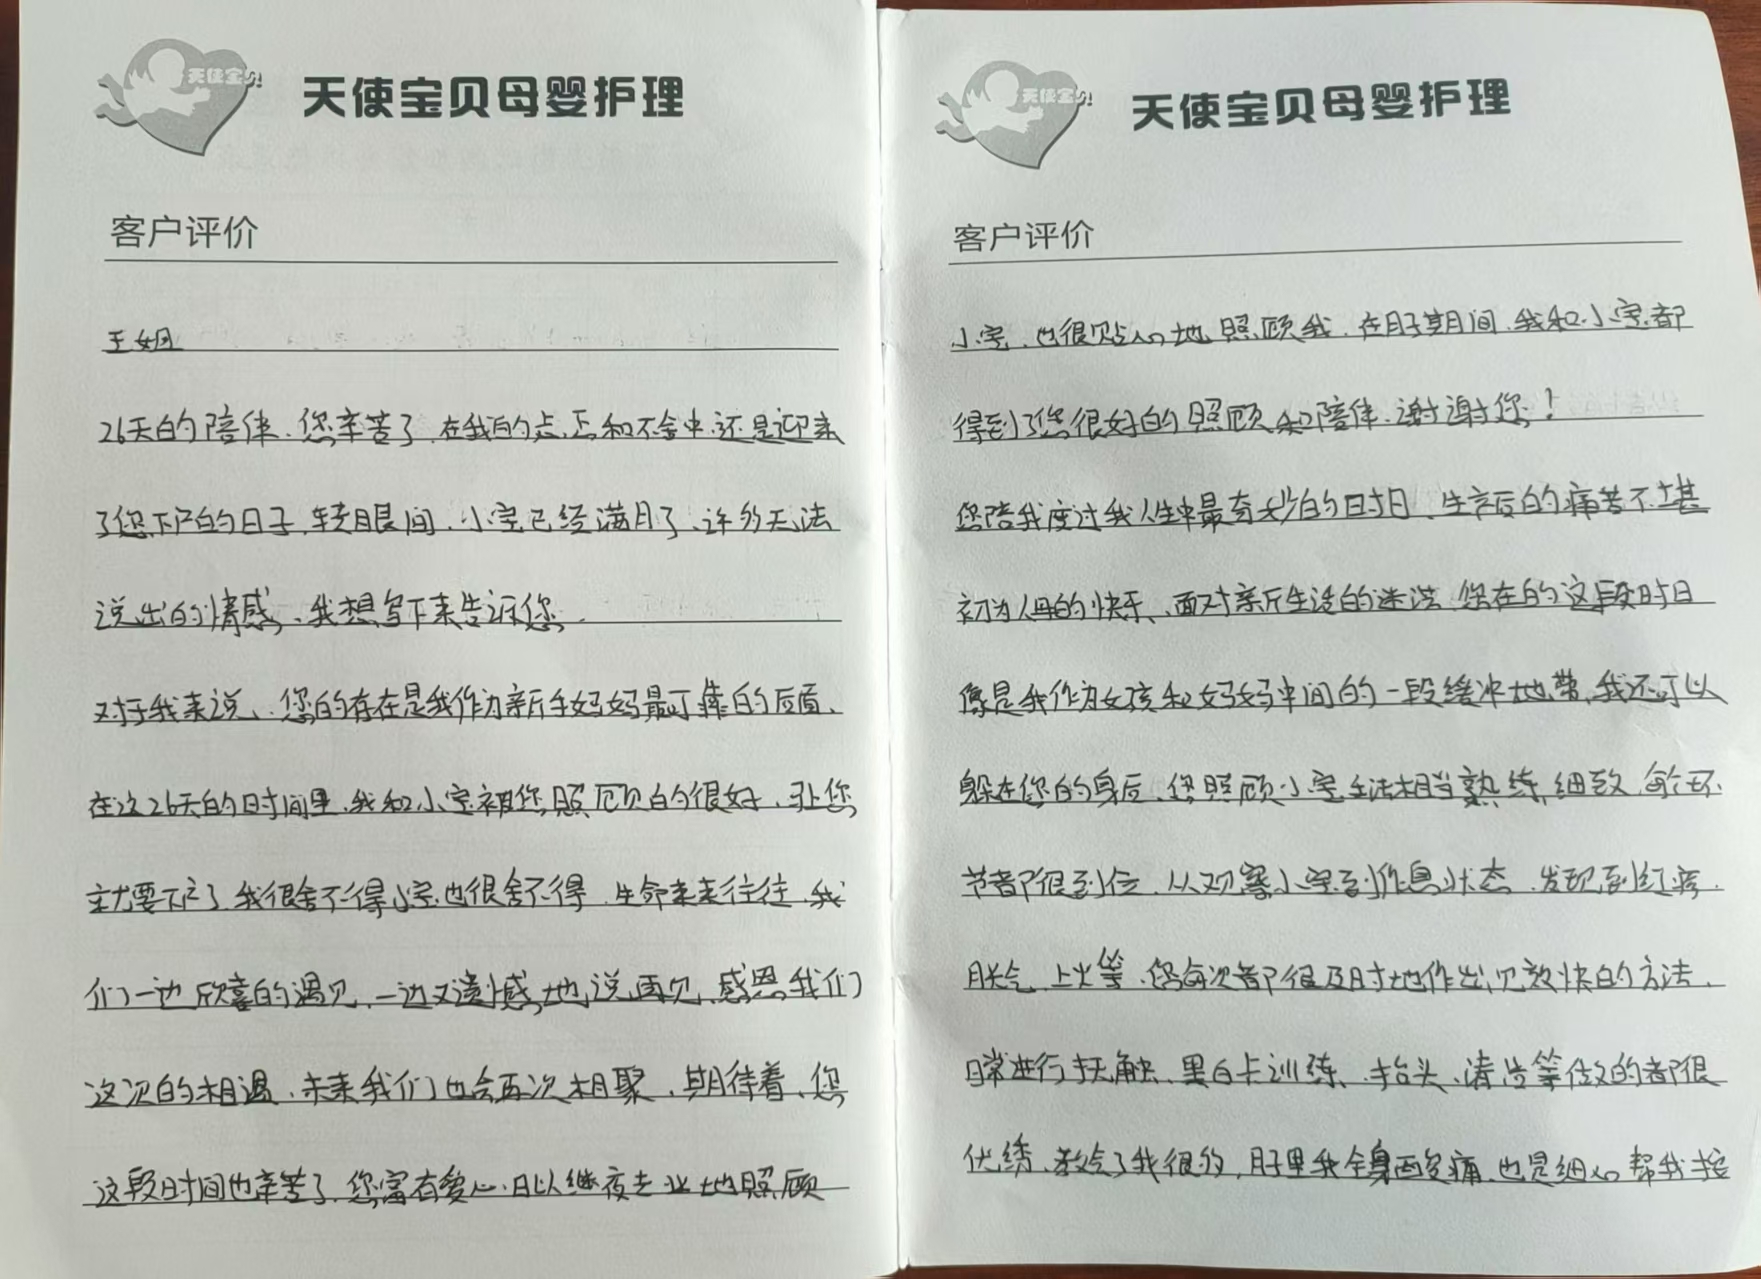 天使宝贝
天使宝贝母婴护理
客户评价
王姐
26天的陪伴、您辛苦了、在我的忐忑和不舍中、还是迎来
了您下户的日子、转眼间、小宝已经满月了、许多无法
说出的情感、我想写下来告诉您、
对于我来说、您的存在是我作为新手妈妈最可靠的后盾、
在这26天的时间里、我和小宝被您照顾的很好、
就要下户了、我很舍不得小宝也很舍不得、生命来来往往、我
们一边欣喜的遇见、一边又遗憾地说再见、感恩我们
这次的相遇、未来我们也会再次相聚、期待着、您
这段时间也辛苦了、您富有爱心、日以继夜专业地照顾
天使宝贝
天使宝贝母婴护理
客户评价
小宝、也很贴心地照顾我、在月子期间、我和小宝都
得到了您很好的照顾和陪伴、谢谢您！
您陪我度过我人生中最奇妙的时日、生产后的痛苦不堪
初为人母的快乐、面对新生活的迷茫、您在的这段时日
像是我作为女孩和妈妈中间的一段缓冲地带、我还可以
躲在您的身后、您照顾小宝生活相当熟练、细致、每个环
节都很到位、从观察小宝到作息状态、发现到红疹、
胀气、上火等、您每次都很及时地作出见效快的方法、
日常进行抚触、黑白卡训练、抬头、清洁等做的都很
优绣、教会了我很多、月子里我全身酸痛、也是细心帮我按